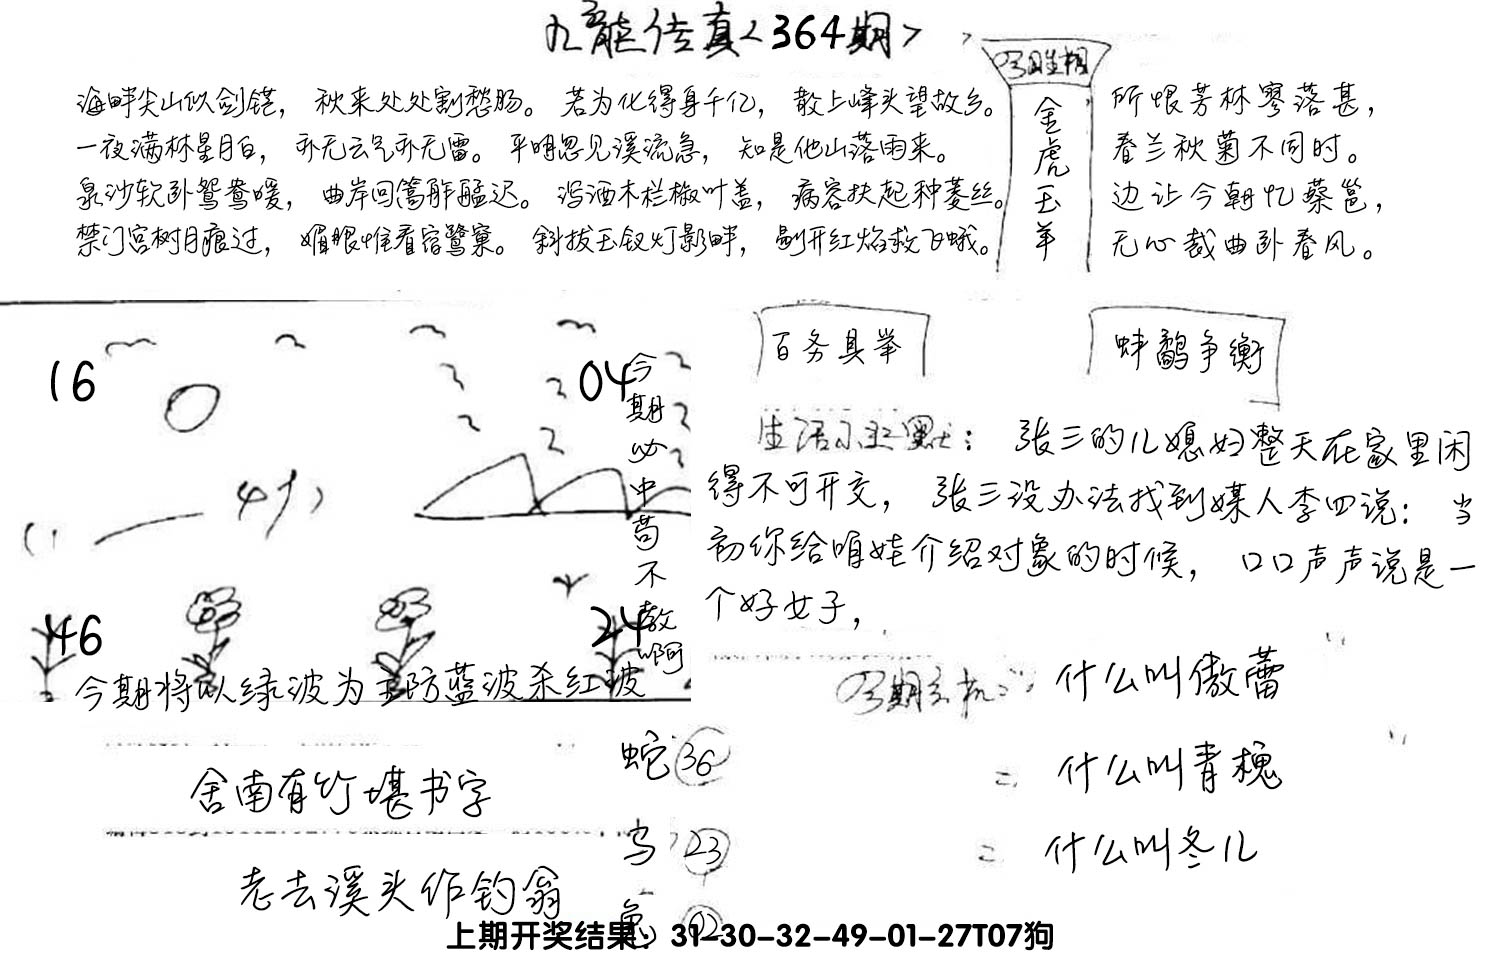 九龙传真<364期>
海畔尖山似剑铓，秋来处处割愁肠。若为化得身千亿，散上峰头望故乡。
一夜满林星月白，亦无云气亦无雷。平明忽见溪流急，知是他山落雨来。
泉沙软卧鸳鸯暖，曲岸回篙舴艋迟。泻酒木栏椒叶盖，病容扶起种菱丝。
禁门宫树月痕过，媚眼惟看宿鹭窠。斜拔玉钗灯影畔，剔开红焰救飞蛾。
金虎玉羊
所恨芳林寥落甚，
春兰秋菊不同时。
边让今朝忆蔡邕，
无心裁曲卧春风。
16
04
46
24
今期必中苟不教啊
今期将以绿波为主防蓝波杀红波
百务具举
蚌鹬争衡
张三的儿媳妇整天在家里闲
得不可开交，张三没办法找到媒人李四说：当
初你给咱娃介绍对象的时候，口口声声说是一
个好女子，
什么叫傲蕾
什么叫青槐
什么叫冬儿
舍南有竹堪书字
老去溪头作钓翁
蛇 36
鸟 23
兔 02
上期开奖结果：31-30-32-49-01-27T07狗